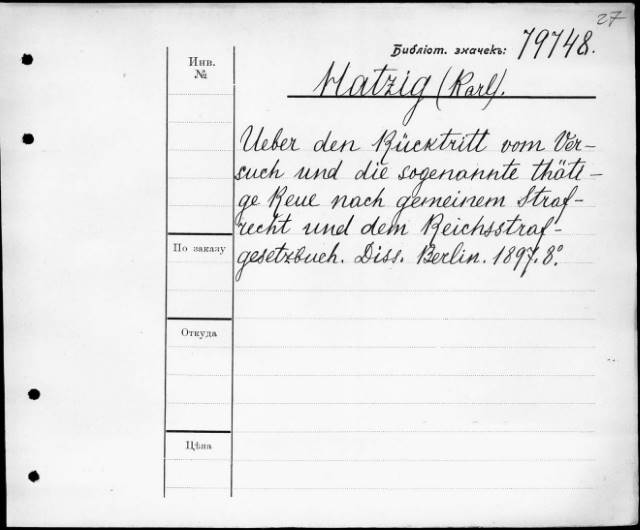 27
Библіот. значекъ: 79748.
Инв.
№
Hatzig (Karl).
Ueber den Rücktritt vom Ver-
such und die sogenannte thäti-
ge Reue nach gemeinem Straf-
recht und dem Reichsstraf-
gesetzbuch. Diss. Berlin. 1897. 8º.
По заказу
Откуда
Цѣна